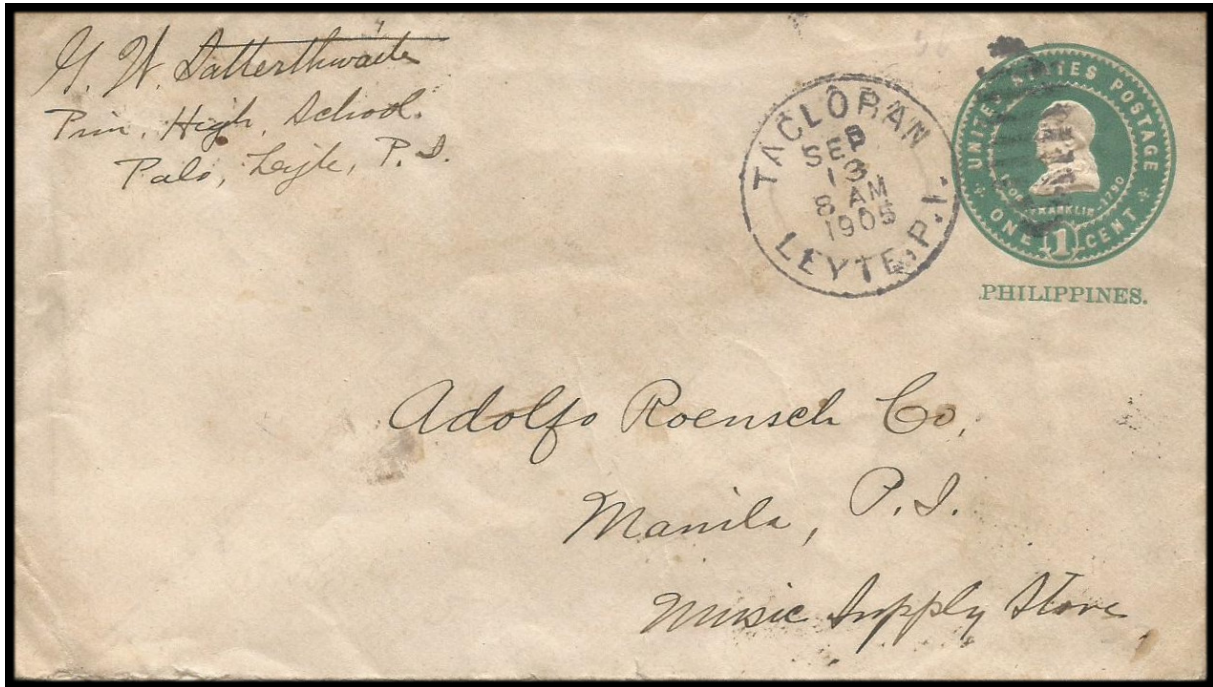 G. W. Satterthwaite
Prin. High. School.
Palo, Leyte, P. I.
TACLOBAN
SEP
13
8 AM
1905
LEYTE, P. I.
UNITED STATES POSTAGE
1706 FRANKLIN 1790
ONE 1 CENT
PHILIPPINES.
Adolfo Roensch Co.
Manila, P. I.
Music Supply Store